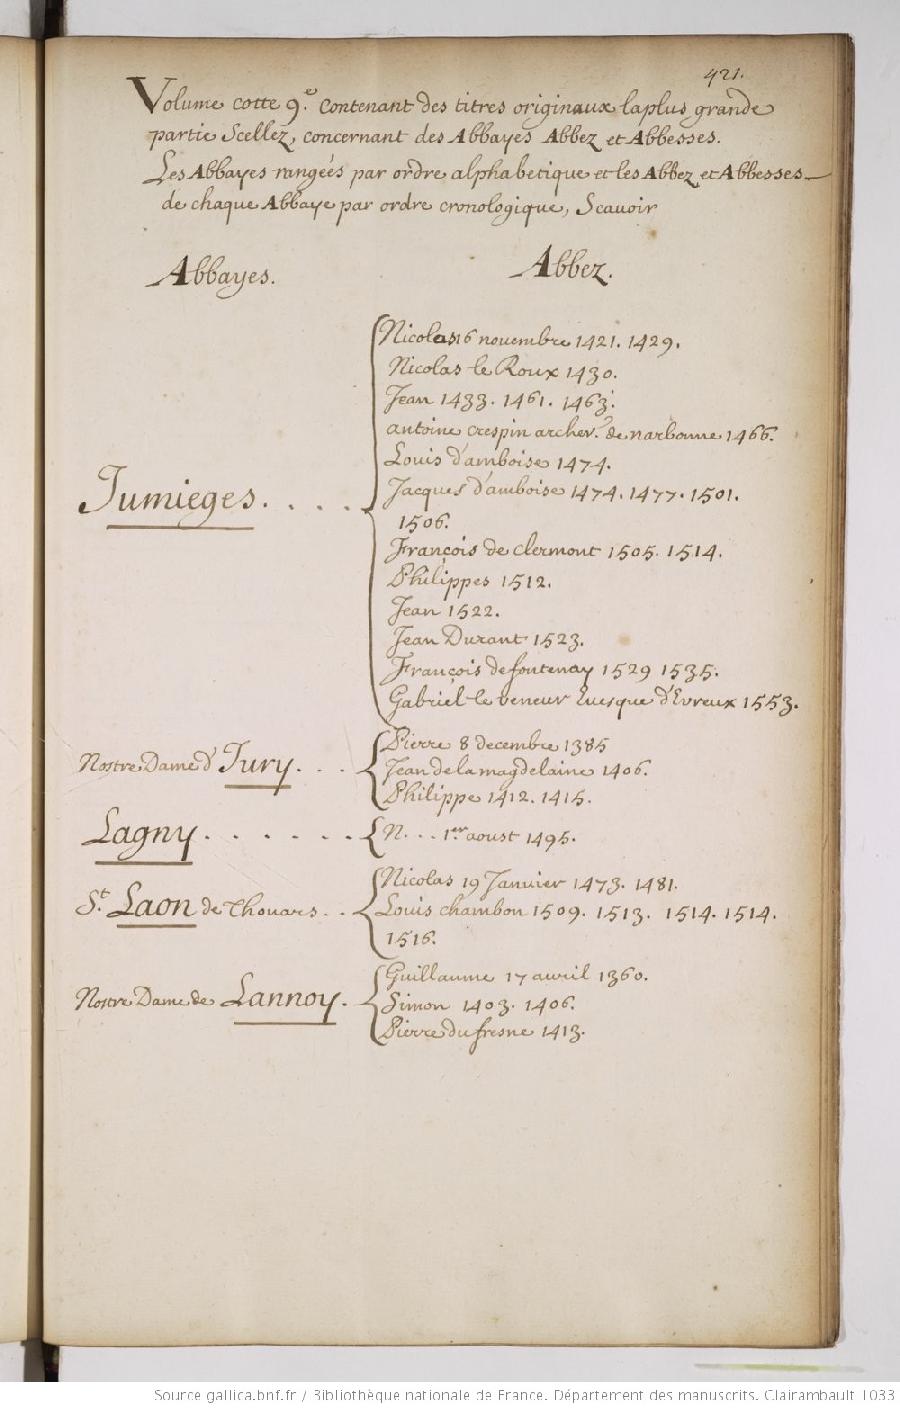 421.
Volume cotte 9.e contenant des titres originaux la plus grande
partie Scellez, concernant des Abbayes Abbez et Abbesses.
Les Abbayes rangées par ordre alphabetique et les Abbez et Abbesses
de chaque Abbaye par ordre cronologique, Scauoir
Abbayes.
Abbez.
Jumieges. . . . .
Nicolas 16 nouembre 1421. 1429.
Nicolas le Roux 1430.
Jean 1433. 1461. 1463.
antoine crespin archev.e de narbonne 1466.
Louis d'amboise 1474.
Jacques d'amboise 1474. 1477. 1501.
1506.
François de clermont 1505. 1514.
Philippes 1512.
Jean 1522.
Jean Durant 1523.
François de fontenay 1529 1535.
Gabriel le veneur Euesque d'Evreux 1553.
Nostre Dame d'Jury. . . .
Pierre 8 decembre 1385
Jean de la magdelaine 1406.
Philippe 1412. 1415.
Lagny. . . . . . .
N. . . . 1er aoust 1495.
St. Laon de Thouars. . .
Nicolas 19 Januier 1473. 1481.
Louis chambon 1509. 1513. 1514. 1514.
1516.
Nostre Dame de Lannoy.
Guillaume 17 avril 1360.
Simon 1403. 1406.
Pierre du fresne 1413.
Source gallica.bnf.fr / Bibliothèque nationale de France. Département des manuscrits. Clairambault 1033